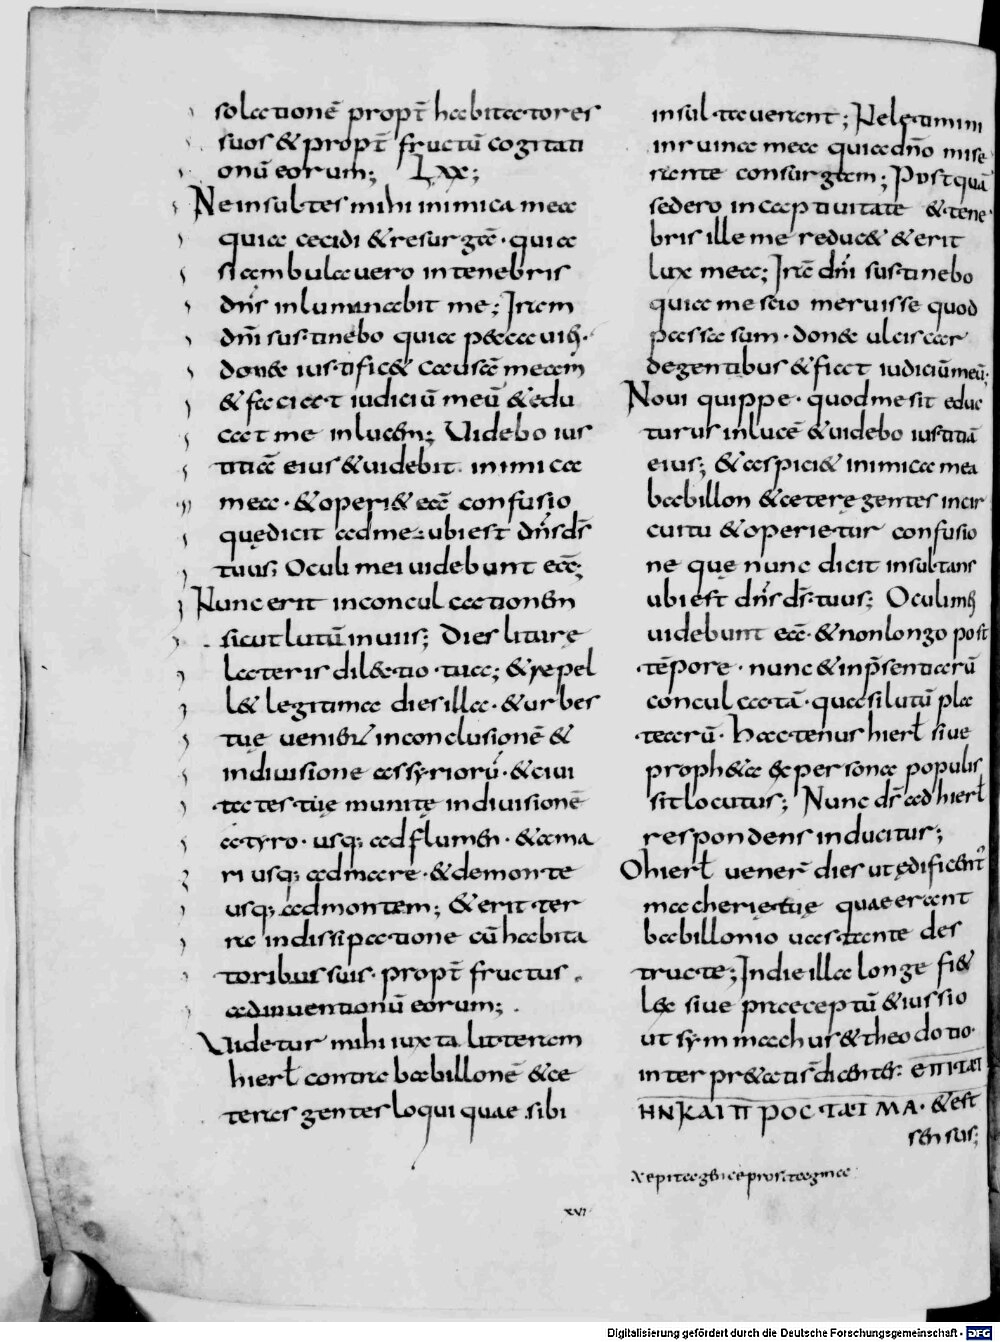 solationē propt̄ habitatores
suos & propt̄ fructū cogitati
onū eorum; Lxx;
Ne insultes mihi inimica mea
quia cecidi & resurgā · quia
si ambulavero in tenebris
dn̄s inluminabit me; Iram
dn̄i sustinebo quia peccavi ·
donec iustific& causā meam
& faciat iudiciū meū & edu
cat me in lucem; Videbo ius
titiā eius & videbit inimica
mea · & operi& eā confusio
quę dicit ad me ubi est dn̄s ds̄
tuus; Oculi mei videbunt eā;
Nunc erit in conculcationem
sicut lutū in viis; Dies liturę
lateris dilectio tua; & repel
l& legitima dies illa · & urbes
tuę venient in conclusionē &
in divisione assyriorū · & civi
tates tuę munitę in divisionē
a tyro · usq; ad flumen · & a ma
ri usq; ad mare · & de monte
usq; ad montem; & erit ter
ra in dissipatione cū habita
toribus suis · propt̄ fructus
adinventionū eorum;
Videtur mihi iuxta litteram
hierł contra babillonē & ce
teras gentes loqui quae sibi
insultaverant; Ne l&imini
in ruina mea quia dn̄o mise
rante consurgam; Postquā
sedero in captivitate & tene
bris ille me reduc& & erit
lux mea; Irā dn̄i sustinebo
quia me scio meruisse quod
passa sum · donec ulciscar
de gentibus & fiat iudiciū meū;
Novi quippe · quod me sit educ
turus in lucē & videbo iustitiā
eius; & aspici& inimica mea
babillon & ceterę gentes in cir
cuitu & operietur confusio
ne quę nunc dicit insultans
ubi est dn̄s ds̄ tuus; Oculi mei
videbunt eā · & non longo post
tēpore · nunc & in p̄sentiarū
conculcatā · quasi lutū pla
tearū · Hactenus hierł sive
proph&a ex persona populi
sit locutus; Nunc ds̄ ad hierł
respondens inducitur;
O hierł venerť dies ut ędificent̄
maceherię tuę quae erant
babillonio vastante des
tructe; In die illa longe fi&
lex sive praeceptū & iussio
ut symmachus & theodotio
interpr&atis̄ dicentes: ΕΠΙΤΑΓ
ΗΝ ΚΑΙ ΠΡΟСΤΑΓΜΑ · & est
sensus;
xvi